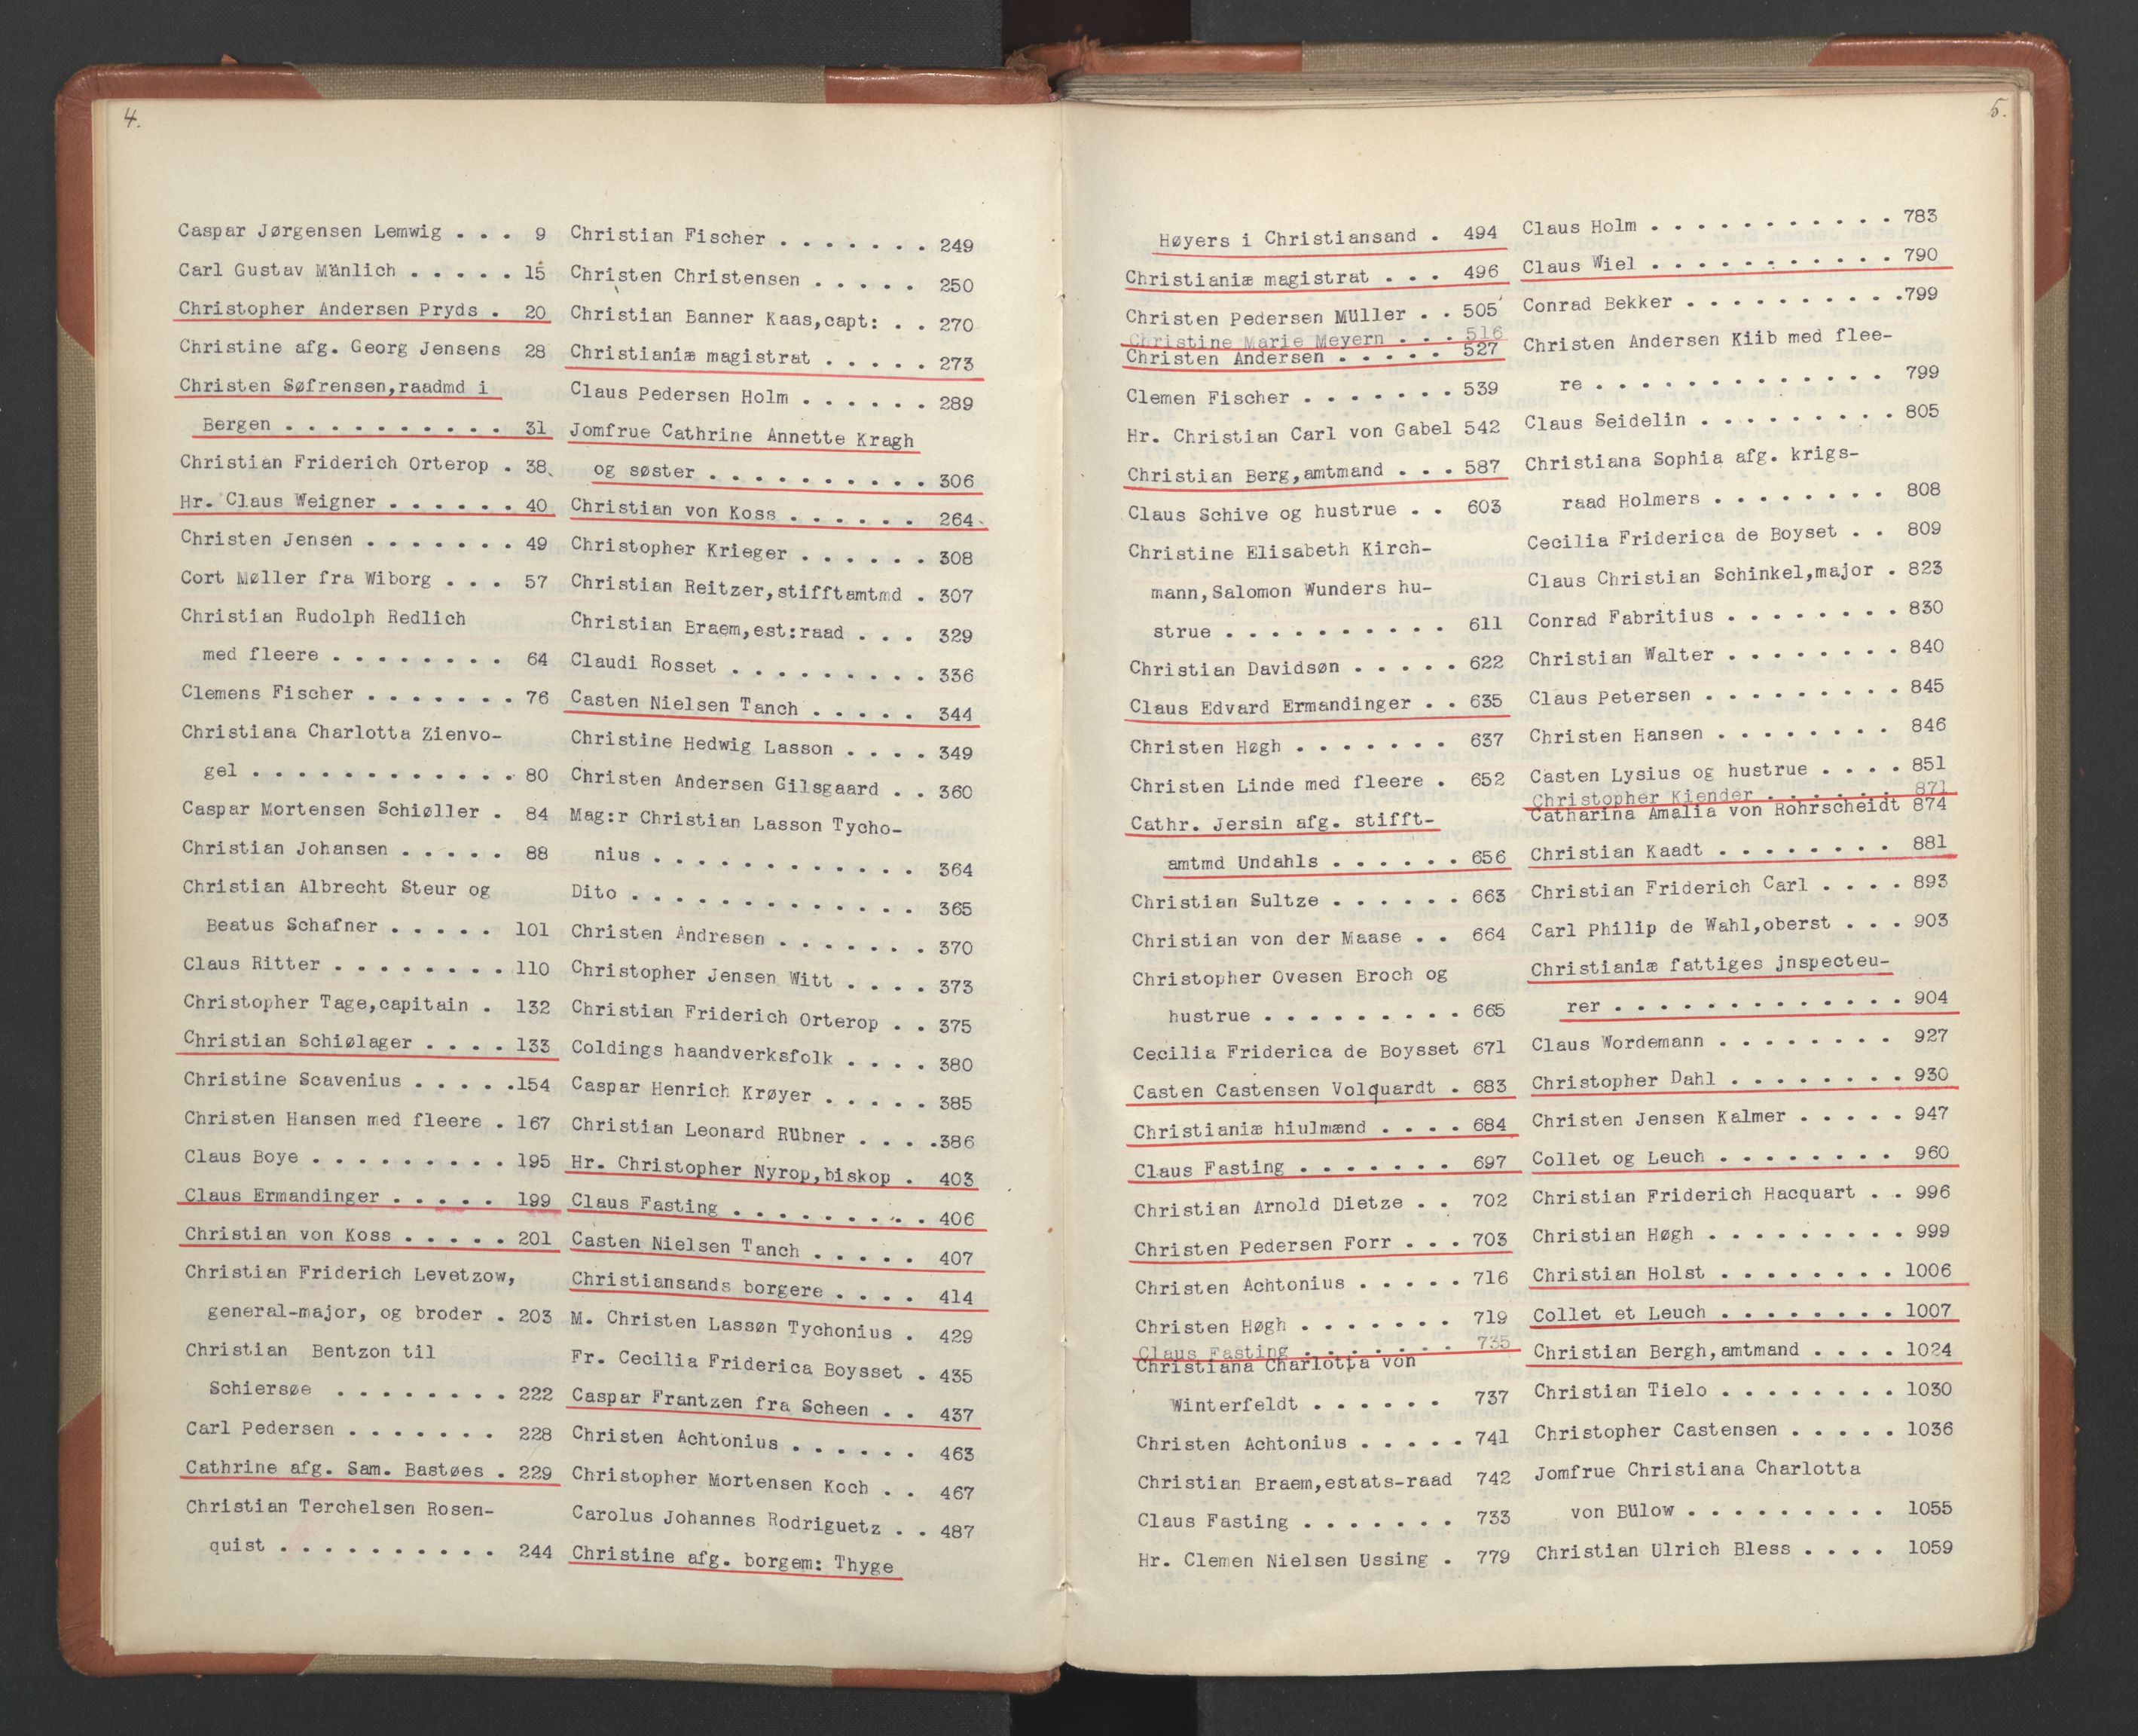 4.
Caspar Jørgensen Lemwig . . . 9
Carl Gustav Mänlich . . . . . 15
Christopher Andersen Pryds . 20
Christine afg. Georg Jensens 28
Christen Søfrensen,raadmd i
Bergen . . . . . . . . . . 31
Christian Friderich Orterop . 38
Hr. Claus Weigner . . . . . . 40
Christen Jensen . . . . . . . 49
Cort Møller fra Wiborg . . . 57
Christian Rudolph Redlich
med fleere . . . . . . . . 64
Clemens Fischer . . . . . . . 76
Christiana Charlotta Zienvo-
gel . . . . . . . . . . . . 80
Caspar Mortensen Schiøller . 84
Christian Johansen . . . . . 88
Christian Albrecht Steur og
Beatus Schafner . . . . . 101
Claus Ritter . . . . . . . . 110
Christopher Tage,capitain . 132
Christian Schiølager . . . . 133
Christine Scavenius . . . . .154
Christen Hansen med fleere . 167
Claus Boye . . . . . . . . . 195
Claus Ermandinger . . . . . 199
Christian von Koss . . . . . 201
Christian Friderich Levetzow,
general-major, og broder . 203
Christian Bentzon til
Schiersøe . . . . . . . . 222
Carl Pedersen . . . . . . . 228
Cathrine afg. Sam. Bastøes . 229
Christian Terchelsen Rosen-
quist . . . . . . . . . . 244
Christian Fischer . . . . . . . 249
Christen Christensen . . . . . 250
Christian Banner Kaas,capt: . . 270
Christianiæ magistrat . . . . . 273
Claus Pedersen Holm . . . . . . 289
Jomfrue Cathrine Annette Kragh
og søster . . . . . . . . . . 306
Christian von Koss . . . . . . 264
Christopher Krieger . . . . . . 308
Christian Reitzer,stifftamtmd . 307
Christian Braem,est:raad . . . 329
Claudi Rosset . . . . . . . . . 336
Casten Nielsen Tanch . . . . . 344
Christine Hedwig Lasson . . . . 349
Christen Andersen Gilsgaard . . 360
Mag:r Christian Lasson Tycho-
nius . . . . . . . . . . . . 364
Dito . . . . . . . . . . . . . 365
Christen Andresen . . . . . . . 370
Christopher Jensen Witt . . . . 373
Christian Friderich Orterop . . 375
Coldings haandverksfolk . . . . 380
Caspar Henrich Krøyer . . . . . 385
Christian Leonard Rübner . . . .386
Hr. Christopher Nyrop,biskop . 403
Claus Fasting . . . . . . . . . 406
Casten Nielsen Tanch . . . . . 407
Christiansands borgere . . . . 414
M. Christen Lassøn Tychonius . 429
Fr. Cecilia Friderica Boysset . 435
Caspar Frantzen fra Scheen . . 437
Christen Achtonius . . . . . . 463
Christopher Mortensen Koch . . 467
Carolus Johannes Rodriguetz . . 487
Christine afg. borgem: Thyge
5.
Høyers i Christiansand . 494
Christianiæ magistrat . . . 496
Christen Pedersen Müller . . 505
Christine Marie Meyern . . . 516
Christen Andersen . . . . . 527
Clemen Fischer . . . . . . . 539
Hr. Christian Carl von Gabel 542
Christian Berg,amtmand . . . 587
Claus Schive og hustrue . . 603
Christine Elisabeth Kirch-
mann,Salomon Wunders hu-
strue . . . . . . . . . . 611
Christian Davidsøn . . . . . 622
Claus Edvard Ermandinger . . 635
Christen Høgh . . . . . . . 637
Christen Linde med fleere . 652
Cathr. Jersin afg. stifft-
amtmd Undahls . . . . . . 656
Christian Sultze . . . . . . 663
Christian von der Maase . . 664
Christopher Ovesen Broch og
hustrue . . . . . . . . . 665
Cecilia Friderica de Boysset 671
Casten Castensen Volquardt . 683
Christianiæ hiulmænd . . . . 684
Claus Fasting . . . . . . . 697
Christian Arnold Dietze . . 702
Christen Pedersen Forr . . . 703
Christen Achtonius . . . . . 716
Christen Høgh . . . . . . . 719
Claus Fasting . . . . . . . 735
Christiana Charlotta von
Winterfeldt . . . . . . 737
Christen Achtonius . . . . . 741
Christian Braem,estats-raad 742
Claus Fasting . . . . . . . 733
Hr. Clemen Nielsen Ussing . 779
Claus Holm . . . . . . . . . . . 783
Claus Wiel . . . . . . . . . . . 790
Conrad Bekker . . . . . . . . . .799
Christen Andersen Kiib med flee-
re . . . . . . . . . . . . . 799
Claus Seidelin . . . . . . . . . 805
Christiana Sophia afg. krigs-
raad Holmers . . . . . . . . 808
Cecilia Friderica de Boyset . . 809
Claus Christian Schinkel,major . 823
Conrad Fabritius . . . . . . . . 830
Christian Walter . . . . . . . . 840
Claus Petersen . . . . . . . . . 845
Christen Hansen . . . . . . . . 846
Casten Lysius og hustrue . . . . 851
Christopher Kiender . . . . . . 871
Catharina Amalia von Rohrscheidt 874
Christian Kaadt . . . . . . . . 881
Christian Friderich Carl . . . . 893
Carl Philip de Wahl,oberst . . . 903
Christianiæ fattiges jnspecteu-
rer . . . . . . . . . . . . . 904
Claus Wordemann . . . . . . . . 927
Christopher Dahl . . . . . . . . 930
Christen Jensen Kalmer . . . . . 947
Collet og Leuch . . . . . . . . 960
Christian Friderich Hacquart . . 996
Christian Høgh . . . . . . . . . 999
Christian Holst . . . . . . . . 1006
Collet et Leuch . . . . . . . . 1007
Christian Bergh,amtmand . . . . 1024
Christian Tielo . . . . . . . . 1030
Christopher Castensen . . . . . 1036
Jomfrue Christiana Charlotta
von Bülow . . . . . . . . . 1055
Christian Ulrich Bless . . . . 1059